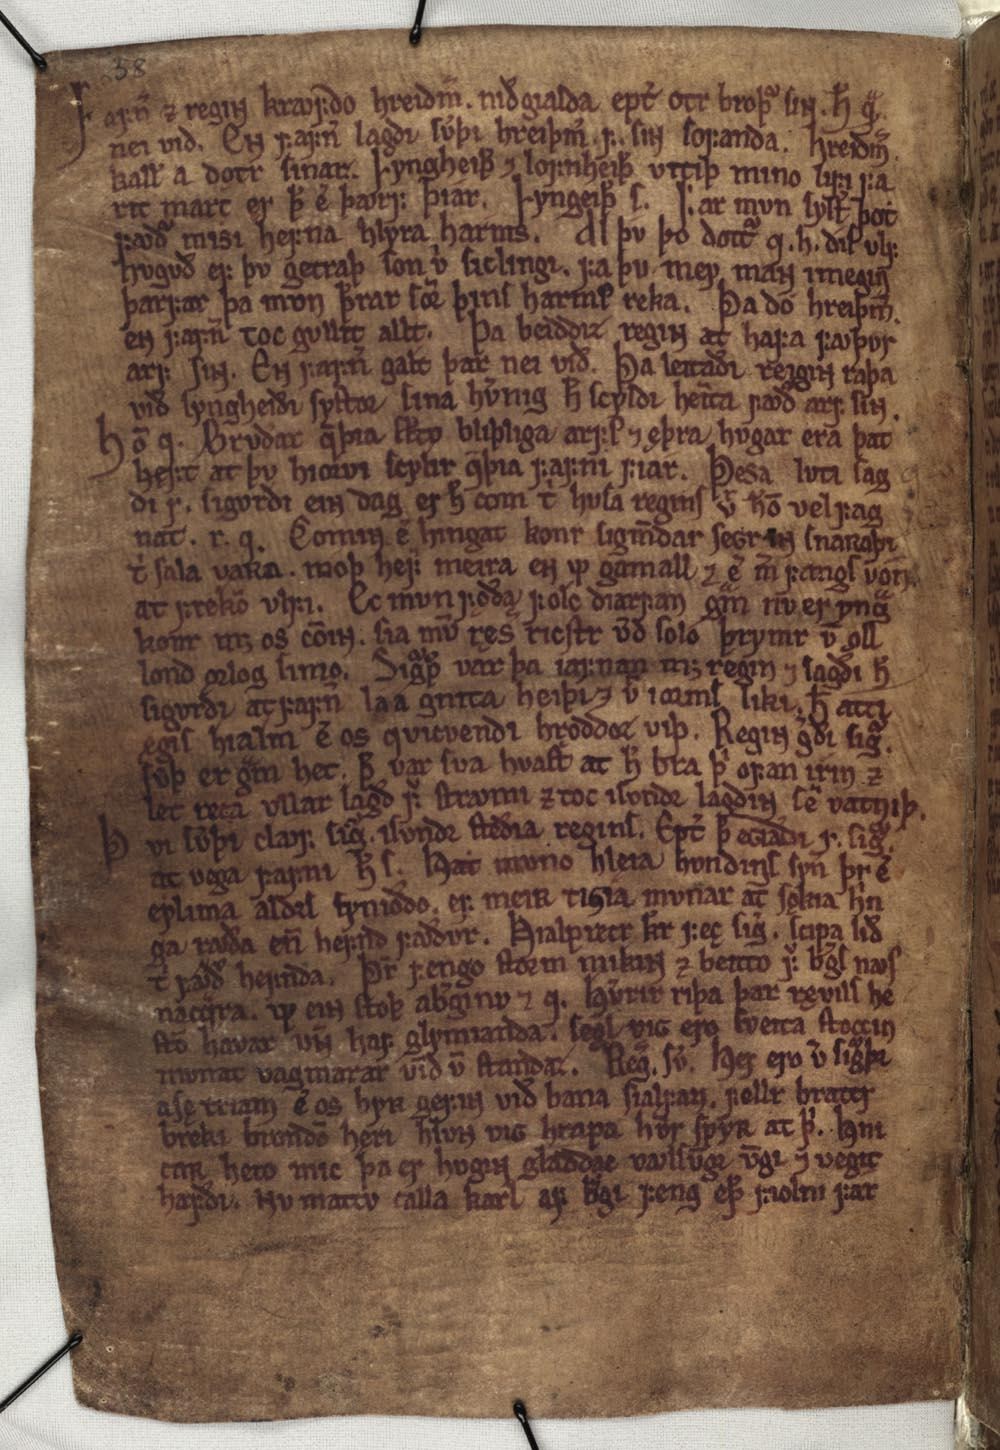 58
Fafn̄ ⁊ regin krꜹfðo hreidm̄. niðgialda ept̄ otr broþ̛ sin. h̄ q̄.
nei vid. En fafn̄ lagdi sv̛þi hreiþm̄. f. sin sofanda. hreidm̄
kall a dotr sinar. Lyngheiþ ⁊ lofnheiþ vitiþ mino lifi fa
rit mart er þ̄ ē þꜹrf þiar. Lyngeiþ s. Far mvn syst̄ þot
fꜹdꝰ misi hefna hlyra harms. Al þv þo dott̛ q. h. dis vlf
hvgvð ef þv getraþ son v̛ siclingi. fa þv mey man imegin̄
þarfar þa mvn þ̄rar son̄ þins harms reka. Þa do hreiþm̄.
en fafn̄ toc gvllit allt. Þa beiddiz regin at hafa fꜹþvr
arf sin. En fafn̄ galt þar nei við. Þa leitaði regin raþa
við lyngheiði systor sina hv̛nig h̄ scyldi heīta fꜹð arf sin.
Hō q. Brvdar q̄þia sc̄to bliþliga arfs ⁊ ęþra hvgar era þat
heft at þv hiorvi scylir q̄þia fafni fiar. Þesa luti sag
ði r. sigvrdi ein dag er h̄ com t̄ husa regins v̄ hō vel fag
nat. r. q. Comin ē hingat konr sigm̄dar segr in snarraþi
t̄ sala vaRa. moþ hef̛ meira en m̄ gamall ⁊ ē m̄ fangs von
at frekō vlfi. Ec mvn fǫða folc diarfan gm̄ nv er yngva
konr m; os cōin. sia mv̄ ręs ricstr vnd solo þrymr v̄ ǫll
lond orlog simo. Sigvþ var þa iafnan m; regin ⁊ sagði h̄
sigvrdi at fafn̄ la a gnita heiþi ⁊ v̄ i orms liki. h̄ atti
ęgis hialm ē os qvicvendi hręddoz viþ. Regin gᵉði sig̛.
sv̛þ er gm̄ het. þ̄ var sva hvast at h̄ bra þ̛ ofan i rin ⁊
let reca vllar lagð f̛ strꜹmi ⁊ toc isvndr lagðin sē vatniþ.
Þvi sv̛þi clꜹf sig̛. isvndr steðia regins. Ept̄ þ̄ eggiadi r. sig̛.
at vega fafni h̄ s. Hat muno hleia hvndings syn̄ þr̄ ē
eylima aldrs synioðo. ef meiR tiGia mvnar at sękia h̄n
ga rꜹða en̄ hefnd fꜹðvr. Hialprecr kr̄ fec sig̛. scipa lið
t̄ fꜹð hefnda. Þr̄ fengo storm mikin ⁊ beitto f̛ bg̛s nꜹs
nacqra. m̄ ein stoþ abg̛inv ⁊ q. Hv̛rir riþa þar ręvils he
stō havar vn̄ir haf glymianda. segl vig ero sveita stoccin
mvnat vagmarar vīd v̄ standaz. Reg̛. sv̛. Her ero v̛ sigvþr
a sę triam ē os byR gefin við bana sialfan. fellr brattr
breki brondō hęri hlvn vig hrapa hv̛r spyR at þ̛. Hni
caR heto mic þa er hvgin gladdae vꜹlsvngr vngi ⁊ vegit
hafði. Nv mattv calla karl af bg̛i feng eþ fiolni far